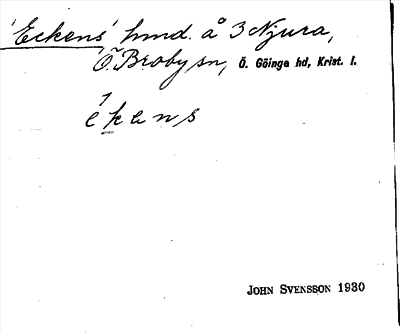 'Eckens' hmd. å 3 Njura,
Ö. Broby sn, Ö. Göinge hd, Krist. l.
ékens
JOHN SVENSSON 1930